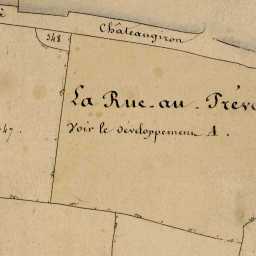 Châteaugiron
348
La Rue-au-Prév
Voir le développement A.
47.